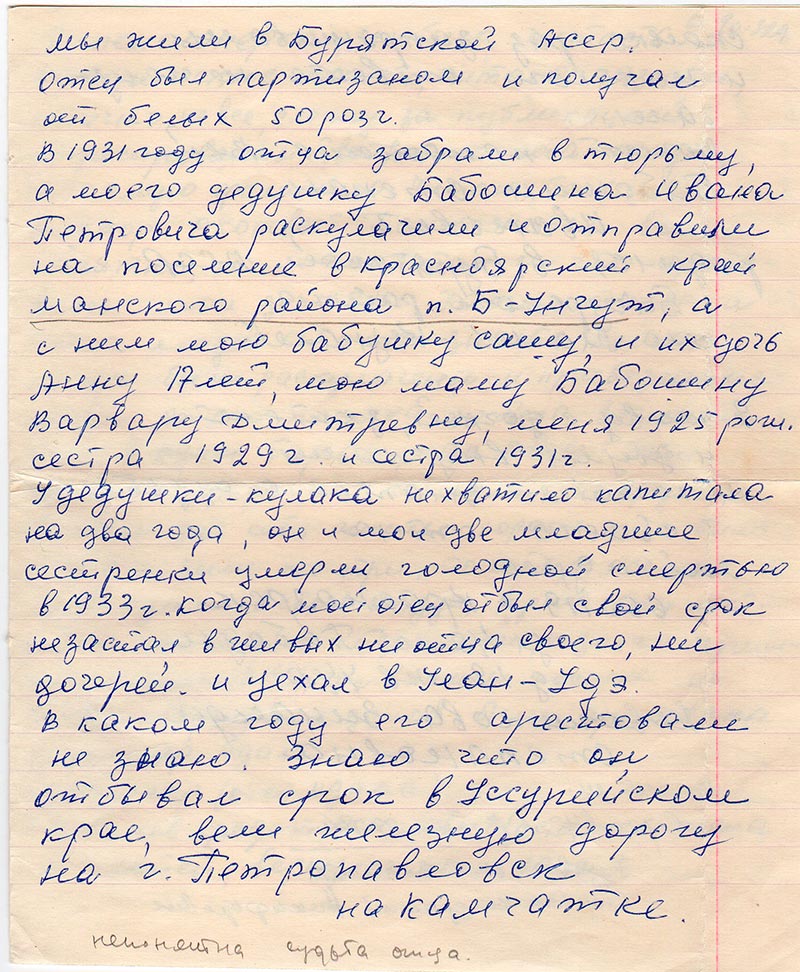 мы жили в Бурятской Асср.
отец был партизаном и получал
от белых 50 розг.
в 1931 году отца забрали в тюрьму,
а моего дедушку Бабошина Ивана
Петровича раскулачили и отправили
на поселение в Красноярский край
манского района п. Б-Унгут, а
с ним мою бабушку сашу, и их дочь
Анну 17 лет, мою маму Бабошину
Варвару Дмитревну, меня 1925 рож.
сестра 1929 г. и сестра 1931 г.
У дедушки-кулака нехватило капитала
на два года, он и мои две младшие
сестренки умерли голодной смертью
в 1933 г. когда мой отец отбыл свой срок
незастал в живых ни отца своего, ни
дочерей. и уехал в Улан-Удэ.
В каком году его арестовали
не знаю. Знаю что он
отбывал срок в Уссурийском
крае, вели железную дорогу
на г. Петропавловск
на камчатке.
непонятна судьба отца.